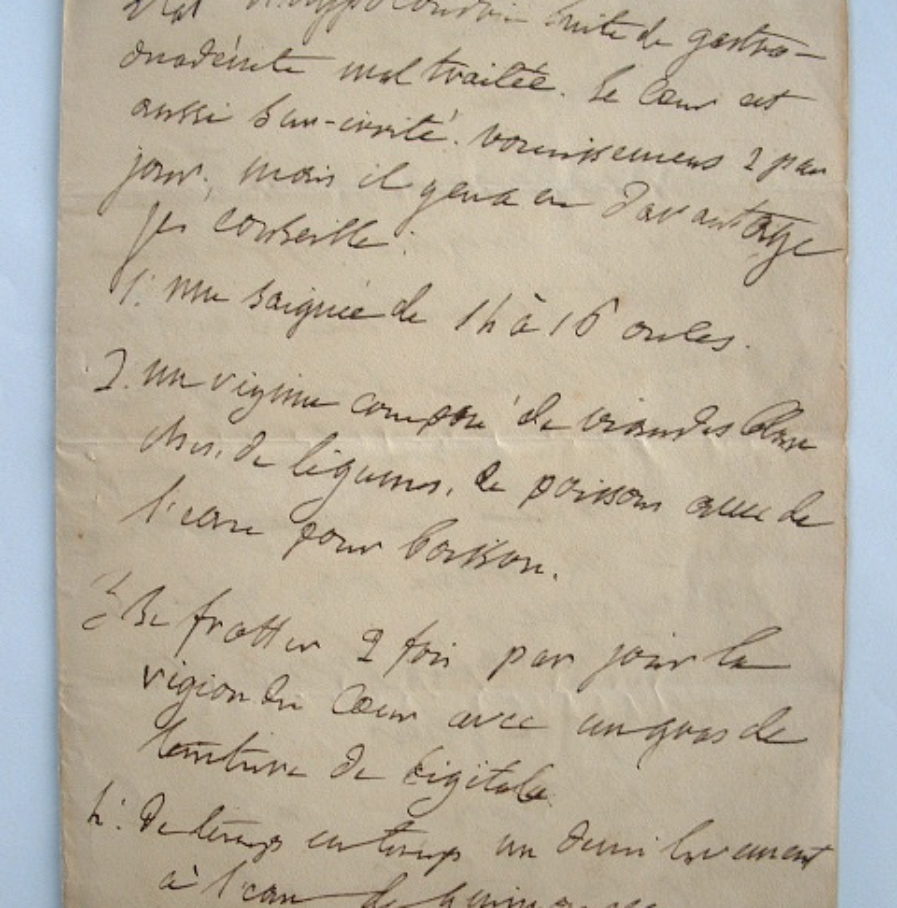 suite de gastro-
duodénite mal traitée. Le Cœur est
aussi sur-irrité. vomissemens 2 par
jour, mais il y en a eu davantage
Je conseille:
1: une saignée de 1h à 16 onces.
2. un régime composé de viandes blan
ches, de légumes, de poissons avec de
l'eau pour boisson.
Se frotter 2 fois par jour la
région du Cœur avec un gros de
teinture de digitale
4: De temps en temps un demi lavement
à l'eau de